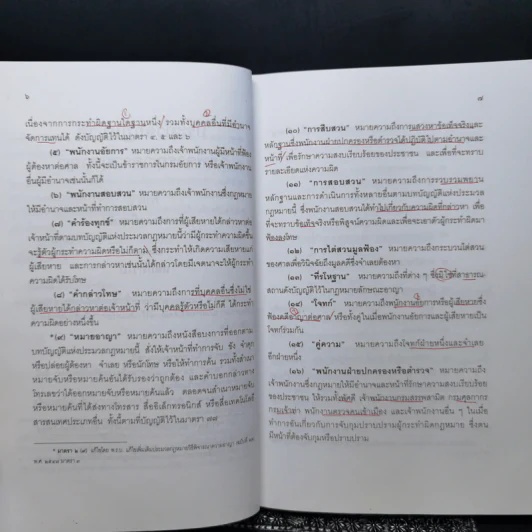 ๖
เนื่องจากการกระทำผิดฐานใดฐานหนึ่ง รวมทั้งบุคคลอื่นที่มีอำนาจ
จัดการแทนได้ ดังบัญญัติไว้ในมาตรา ๔, ๕ และ ๖
(๕) "พนักงานอัยการ" หมายความถึงเจ้าพนักงานผู้มีหน้าที่ฟ้อง
ผู้ต้องหาต่อศาล ทั้งนี้จะเป็นข้าราชการในกรมอัยการ หรือเจ้าพนักงาน
อื่นผู้มีอำนาจเช่นนั้นก็ได้
(๖) "พนักงานสอบสวน" หมายความถึงเจ้าพนักงานซึ่งกฎหมาย
ให้มีอำนาจและหน้าที่ทำการสอบสวน
(๗) "คำร้องทุกข์" หมายความถึงการที่ผู้เสียหายได้กล่าวหาต่อ
เจ้าหน้าที่ตามบทบัญญัติแห่งประมวลกฎหมายนี้ ว่ามีผู้กระทำความผิดขึ้น
จะรู้ตัวผู้กระทำความผิดหรือไม่ก็ตาม ซึ่งกระทำให้เกิดความเสียหายแก่
ผู้เสียหาย และการกล่าวหาเช่นนั้นได้กล่าวโดยมีเจตนาจะให้ผู้กระทำ
ความผิดได้รับโทษ
(๘) "คำกล่าวโทษ" หมายความถึงการที่บุคคลอื่นซึ่งไม่ใช่
ผู้เสียหายได้กล่าวหาต่อเจ้าหน้าที่ ว่ามีบุคคลรู้ตัวหรือไม่ก็ดี ได้กระทำ
ความผิดอย่างหนึ่งขึ้น
*(๙) "หมายอาญา" หมายความถึงหนังสือบงการที่ออกตาม
บทบัญญัติแห่งประมวลกฎหมายนี้ สั่งให้เจ้าหน้าที่ทำการจับ ขัง จำคุก
หรือปล่อยผู้ต้องหา จำเลย หรือนักโทษ หรือให้ทำการค้น รวมทั้งสำเนา
หมายจับหรือหมายค้นอันได้รับรองว่าถูกต้อง และคำบอกกล่าวทาง
โทรเลขว่าได้ออกหมายจับหรือหมายค้นแล้ว ตลอดจนสำเนาหมายจับ
หรือหมายค้นที่ได้ส่งทางโทรสาร สื่ออิเล็กทรอนิกส์ หรือสื่อเทคโนโลยี
สารสนเทศประเภทอื่น ทั้งนี้ตามที่บัญญัติไว้ในมาตรา ๗๗
* มาตรา ๒ (๙) แก้ไขโดย พ.ร.บ. แก้ไขเพิ่มเติมประมวลกฎหมายวิธีพิจารณาความอาญา
๗
(๑๐) "การสืบสวน" หมายความถึงการแสวงหาข้อเท็จจริงและ
หลักฐานซึ่งพนักงานฝ่ายปกครองหรือตำรวจได้ปฏิบัติไปตามอำนาจและ
หน้าที่ เพื่อรักษาความสงบเรียบร้อยของประชาชน และเพื่อที่จะทราบ
รายละเอียดแห่งความผิด
(๑๑) "การสอบสวน" หมายความถึงการรวบรวมพยาน
หลักฐานและการดำเนินการทั้งหลายอื่นตามบทบัญญัติแห่งประมวล
กฎหมายนี้ ซึ่งพนักงานสอบสวนได้ทำไปเกี่ยวกับความผิดที่กล่าวหา เพื่อ
ที่จะทราบข้อเท็จจริงหรือพิสูจน์ความผิดและเพื่อจะเอาตัวผู้กระทำผิดมา
ฟ้องลงโทษ
(๑๒) "การไต่สวนมูลฟ้อง" หมายความถึงกระบวนไต่สวน
ของศาลเพื่อวินิจฉัยถึงมูลคดีซึ่งจำเลยต้องหา
(๑๓) "ที่รโหฐาน" หมายความถึงที่ต่าง ๆ ซึ่งมิใช่ที่สาธารณ
สถานดังบัญญัติไว้ในกฎหมายลักษณะอาญา
(๑๔) "โจทก์" หมายความถึงพนักงานอัยการหรือผู้เสียหายซึ่ง
ฟ้องคดีอาญาต่อศาล หรือทั้งคู่ในเมื่อพนักงานอัยการและผู้เสียหายเป็น
โจทก์ร่วมกัน
(๑๕) "คู่ความ" หมายความถึงโจทก์ฝ่ายหนึ่งและจำเลย
อีกฝ่ายหนึ่ง
(๑๖) "พนักงานฝ่ายปกครองหรือตำรวจ" หมายความถึง
เจ้าพนักงานซึ่งกฎหมายให้มีอำนาจและหน้าที่รักษาความสงบเรียบร้อย
ของประชาชน ให้รวมทั้งพัศดี เจ้าพนักงานกรมสรรพสามิต กรมศุลกากร
กรมเจ้าท่า พนักงานตรวจคนเข้าเมือง และเจ้าพนักงานอื่น ๆ ในเมื่อ
ทำการอันเกี่ยวกับการจับกุมปราบปรามผู้กระทำผิดกฎหมาย ซึ่งตน
มีหน้าที่ต้องจับกุมหรือปราบปราม